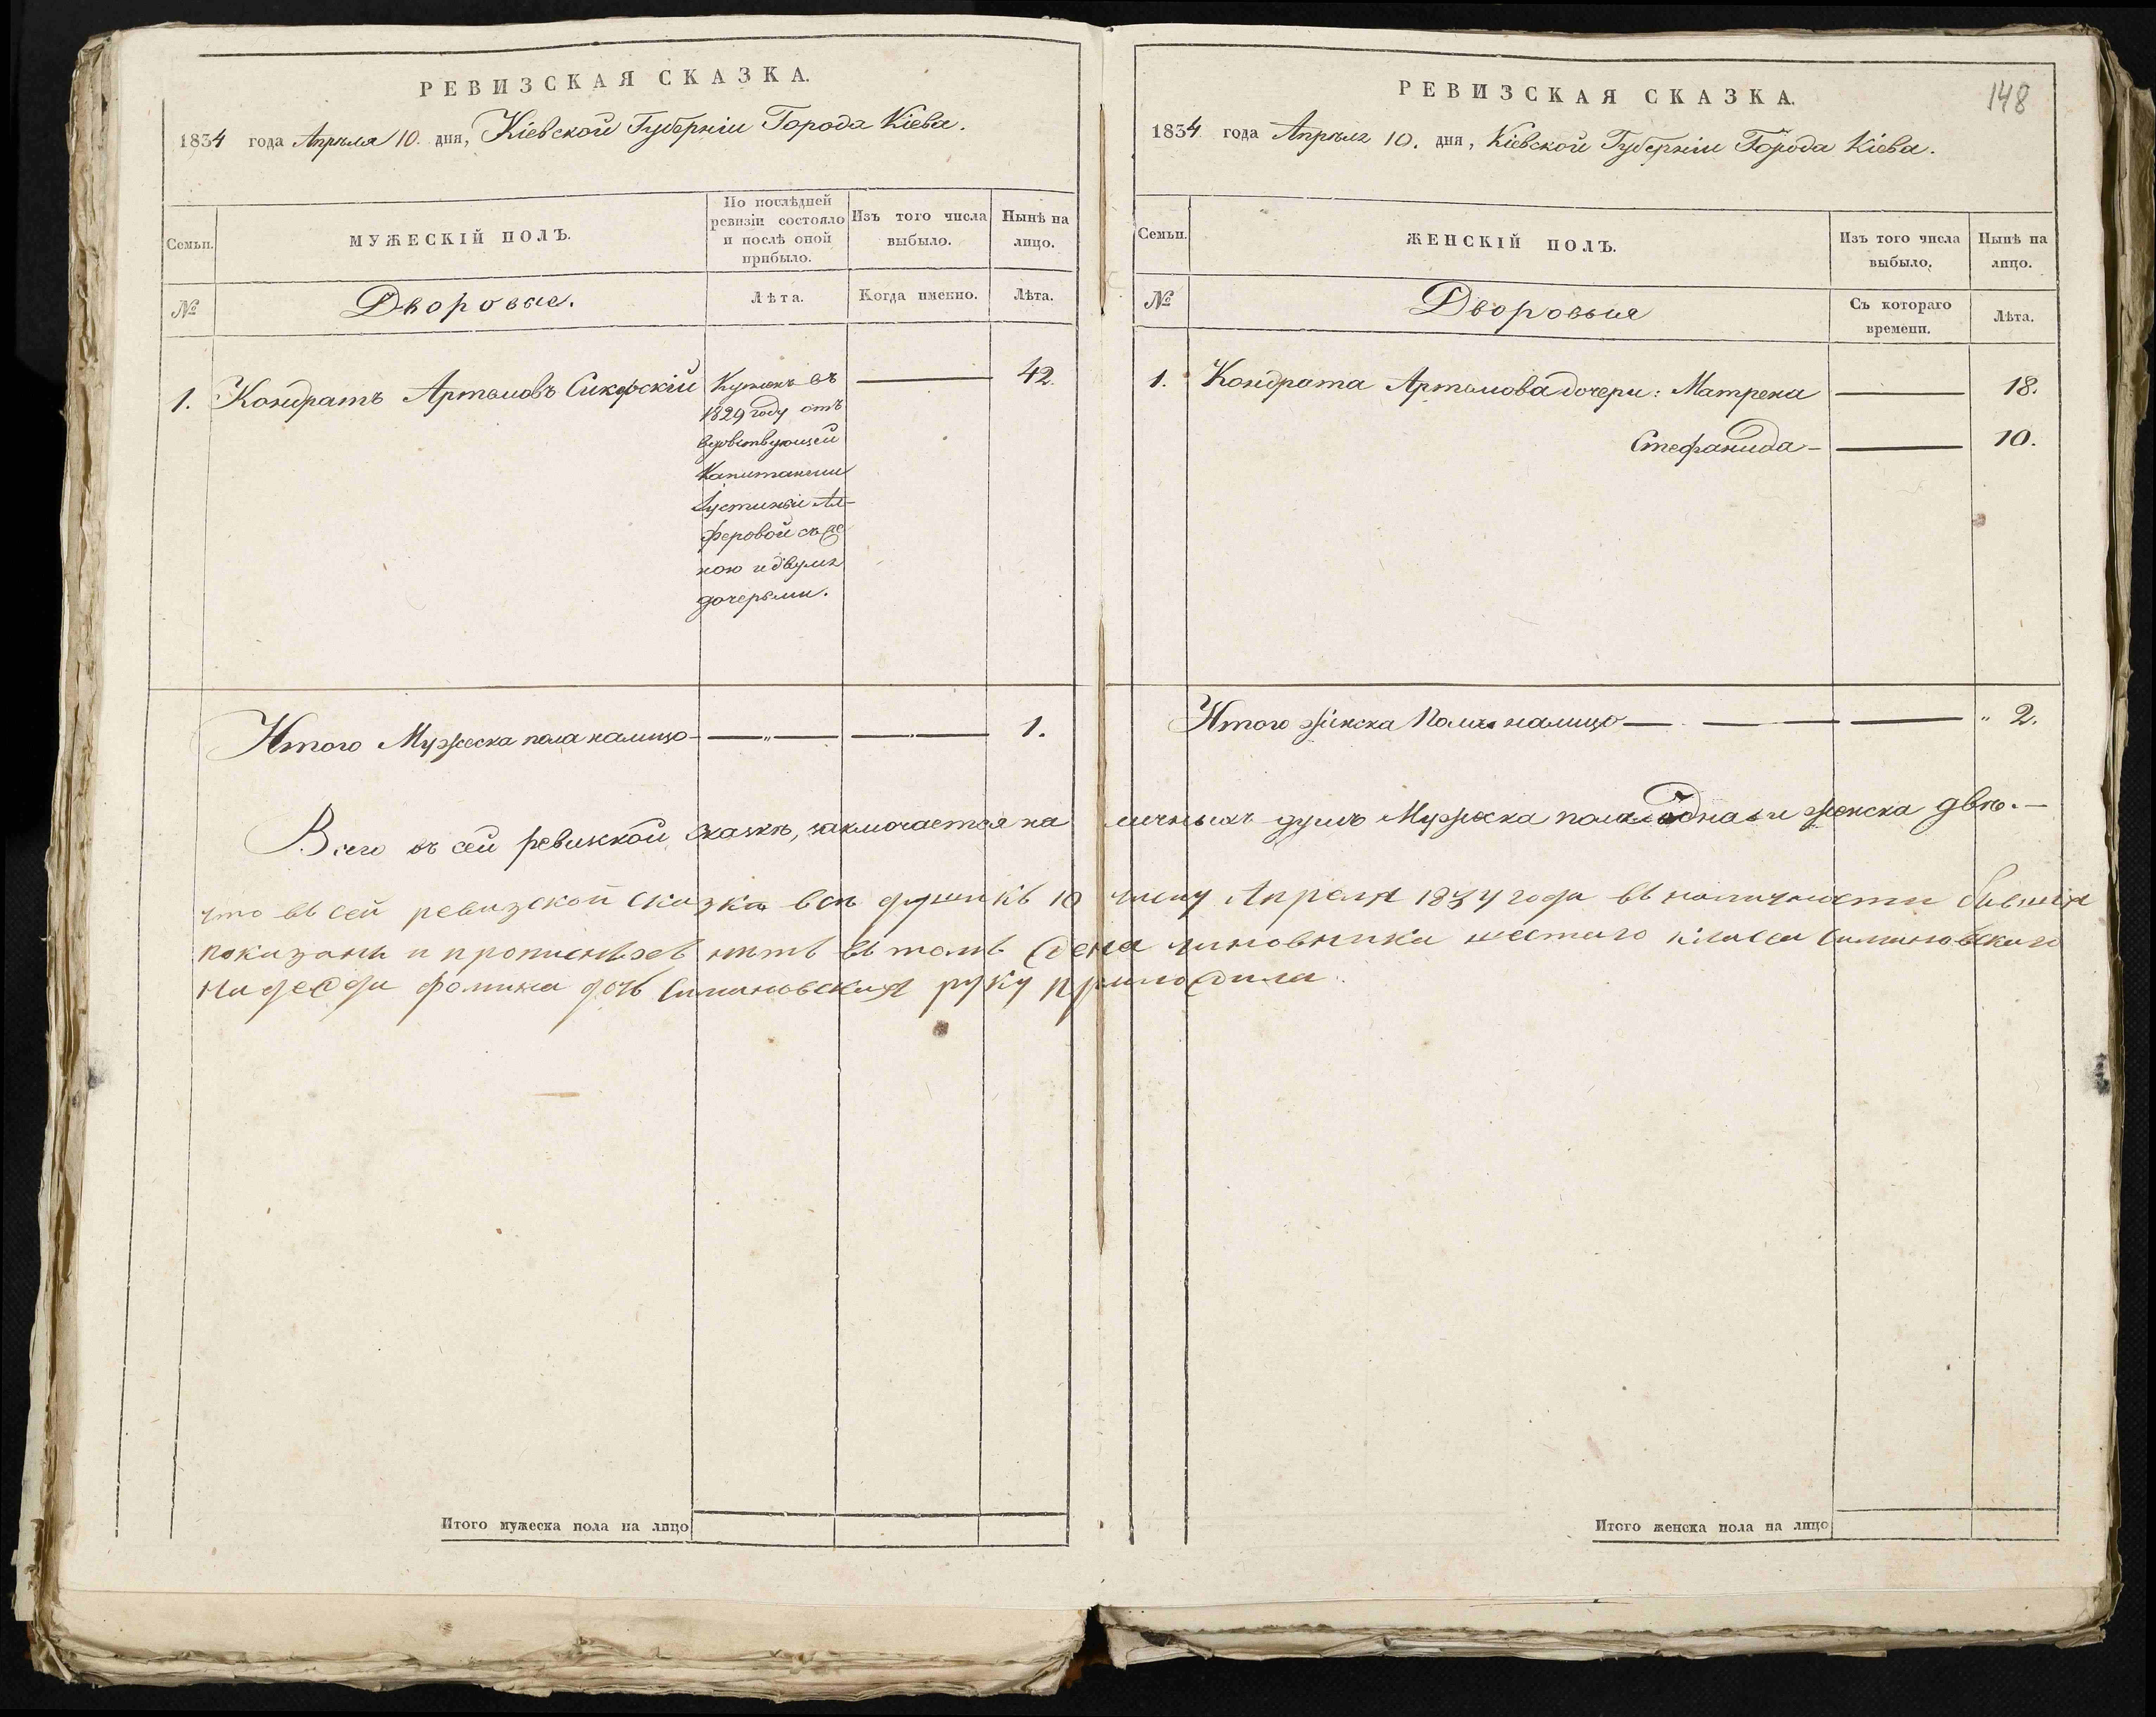 РЕВИЗСКАЯ СКАЗКА.
1834 года Апрѣля 10. дня, Кіевской Губерніи Города Кіева.
Семьи.
МУЖЕСКІЙ ПОЛЪ.
По послѣдней
ревизіи состояло
и послѣ оной
прибыло.
Изъ того числа
выбыло.
Ныне на
лицо.
№
Дворовые.
Лѣта.
Когда именно.
Лѣта.
1. Кондратъ Артемовъ 42.
Купленъ въ
1829 году отъ
вдовствующей
Капитанши
Іустиніи Ал-
феровой съ же
ною и двумя
дочерьми.
Итого Мужеска пола налицо 1.
Всего въ сей ревизской сказкѣ, заключается на
что въ сей ревизской сказка всѣ души къ 10
показаны и прописныхъ нѣтъ въ томъ жена
надежда фомина дочь Симановская руку приложила.
Итого мужеска пола на лицо
РЕВИЗСКАЯ СКАЗКА.
148
1834 года Апрѣля 10. дня, Кіевской Губерніи Города Кіева.
Семьи.
ЖЕНСКІЙ ПОЛЪ.
Изъ того числа
выбыло,
Ныне на
лицо.
№
Дворовыя
Съ котораго
времени.
Лѣта.
1. Кондрата Артемова дочери: Матрена 18.
Стефанида 10.
Итого женска Пола налицо " 2.
личныхъ душъ Мужеска пола одна и женска двѣ.
числу Апреля 1834 года въ наличности бывшія
чиновника шестаго класса Симановскаго
Итого женска пола на лицо